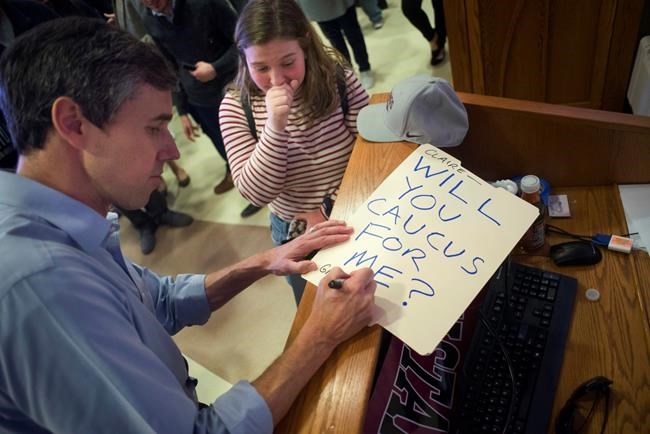 CLAIRE—
WILL
YOU
CAUCUS
FOR
ME?